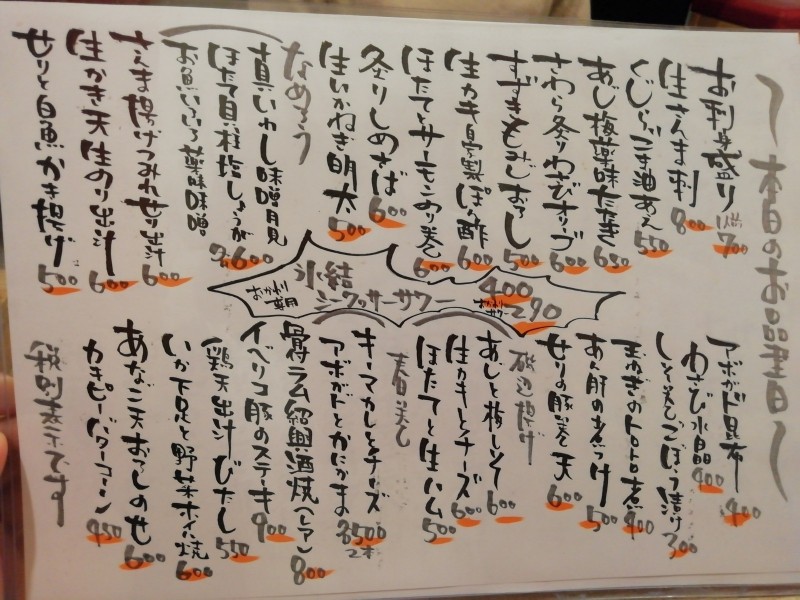 本日のお品書き
お刺身盛り 1人前 700
生さんま刺 800
くじらごま油あえ 550
あじ梅薬味たたき 650
さわら炙りわさびオリーブ 600
すずきもみじおろし 500
生カキ自家製ぽん酢 600
ほたてとサーモンのり巻 600
炙りしめさば 600
生いかねぎ明太 500
なめろう
真いわし味噌月見 600
ほたて貝柱塩しょうが
お魚いろいろ薬味味噌
さんま揚げつみれせり出汁 600
生かき天生のり出汁 600
せりと白魚かき揚げ 500
氷結
シークヮーサーサワー 400
おかわり専用 おかわりサワー 290
アボカド昆布 400
わさび水晶 400
しそ巻ごぼう漬け 300
玉ねぎのトロトロ煮 400
あん肝の煮つけ 500
せりの豚巻天 600
磯辺揚げ
あじと梅しそ 600
生カキとチーズ 600
ほたてと生ハム 500
春巻
キーマカレーとチーズ
アボカドとかにかま 各350 2本
骨付ラム紹興酒焼(レア) 800
イベリコ豚のステーキ 900
鶏天出汁びたし 550
いか下足と野菜ホイル焼 600
あなご天おろしのせ 600
カキピーバターコーン 450
税別表示です